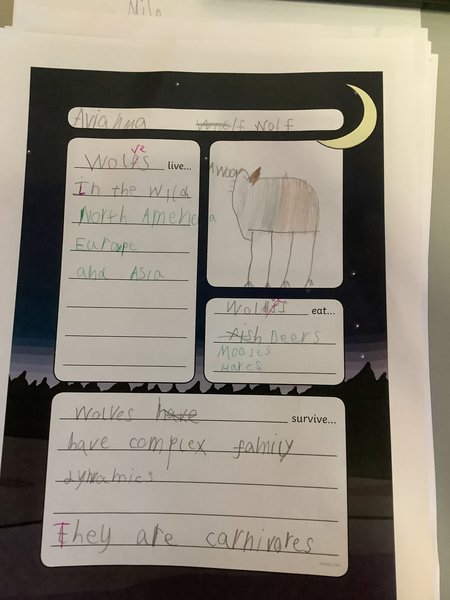 Nila
Arianna Wolf Wolf
ve
Wolfs live...
In the wild
North America
Europe
and Asia
AWooo
Wolfs eat...
fish Deers
Mooses
Hares
Wolves have survive...
have complex family
dynamics
They are carnivores